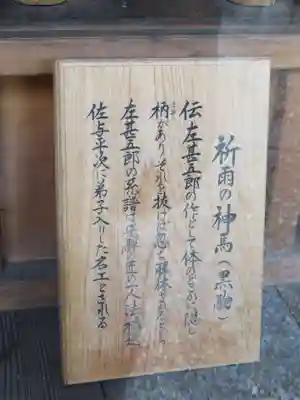 祈雨の神馬（黒駒）
伝左甚五郎の作として体のどこかに隠し
柄がありそれを抜けば忽ち解体するという
左甚五郎の系譜は飛騨の匠の一人法橋
佐与平次に弟子入りした名工とされる